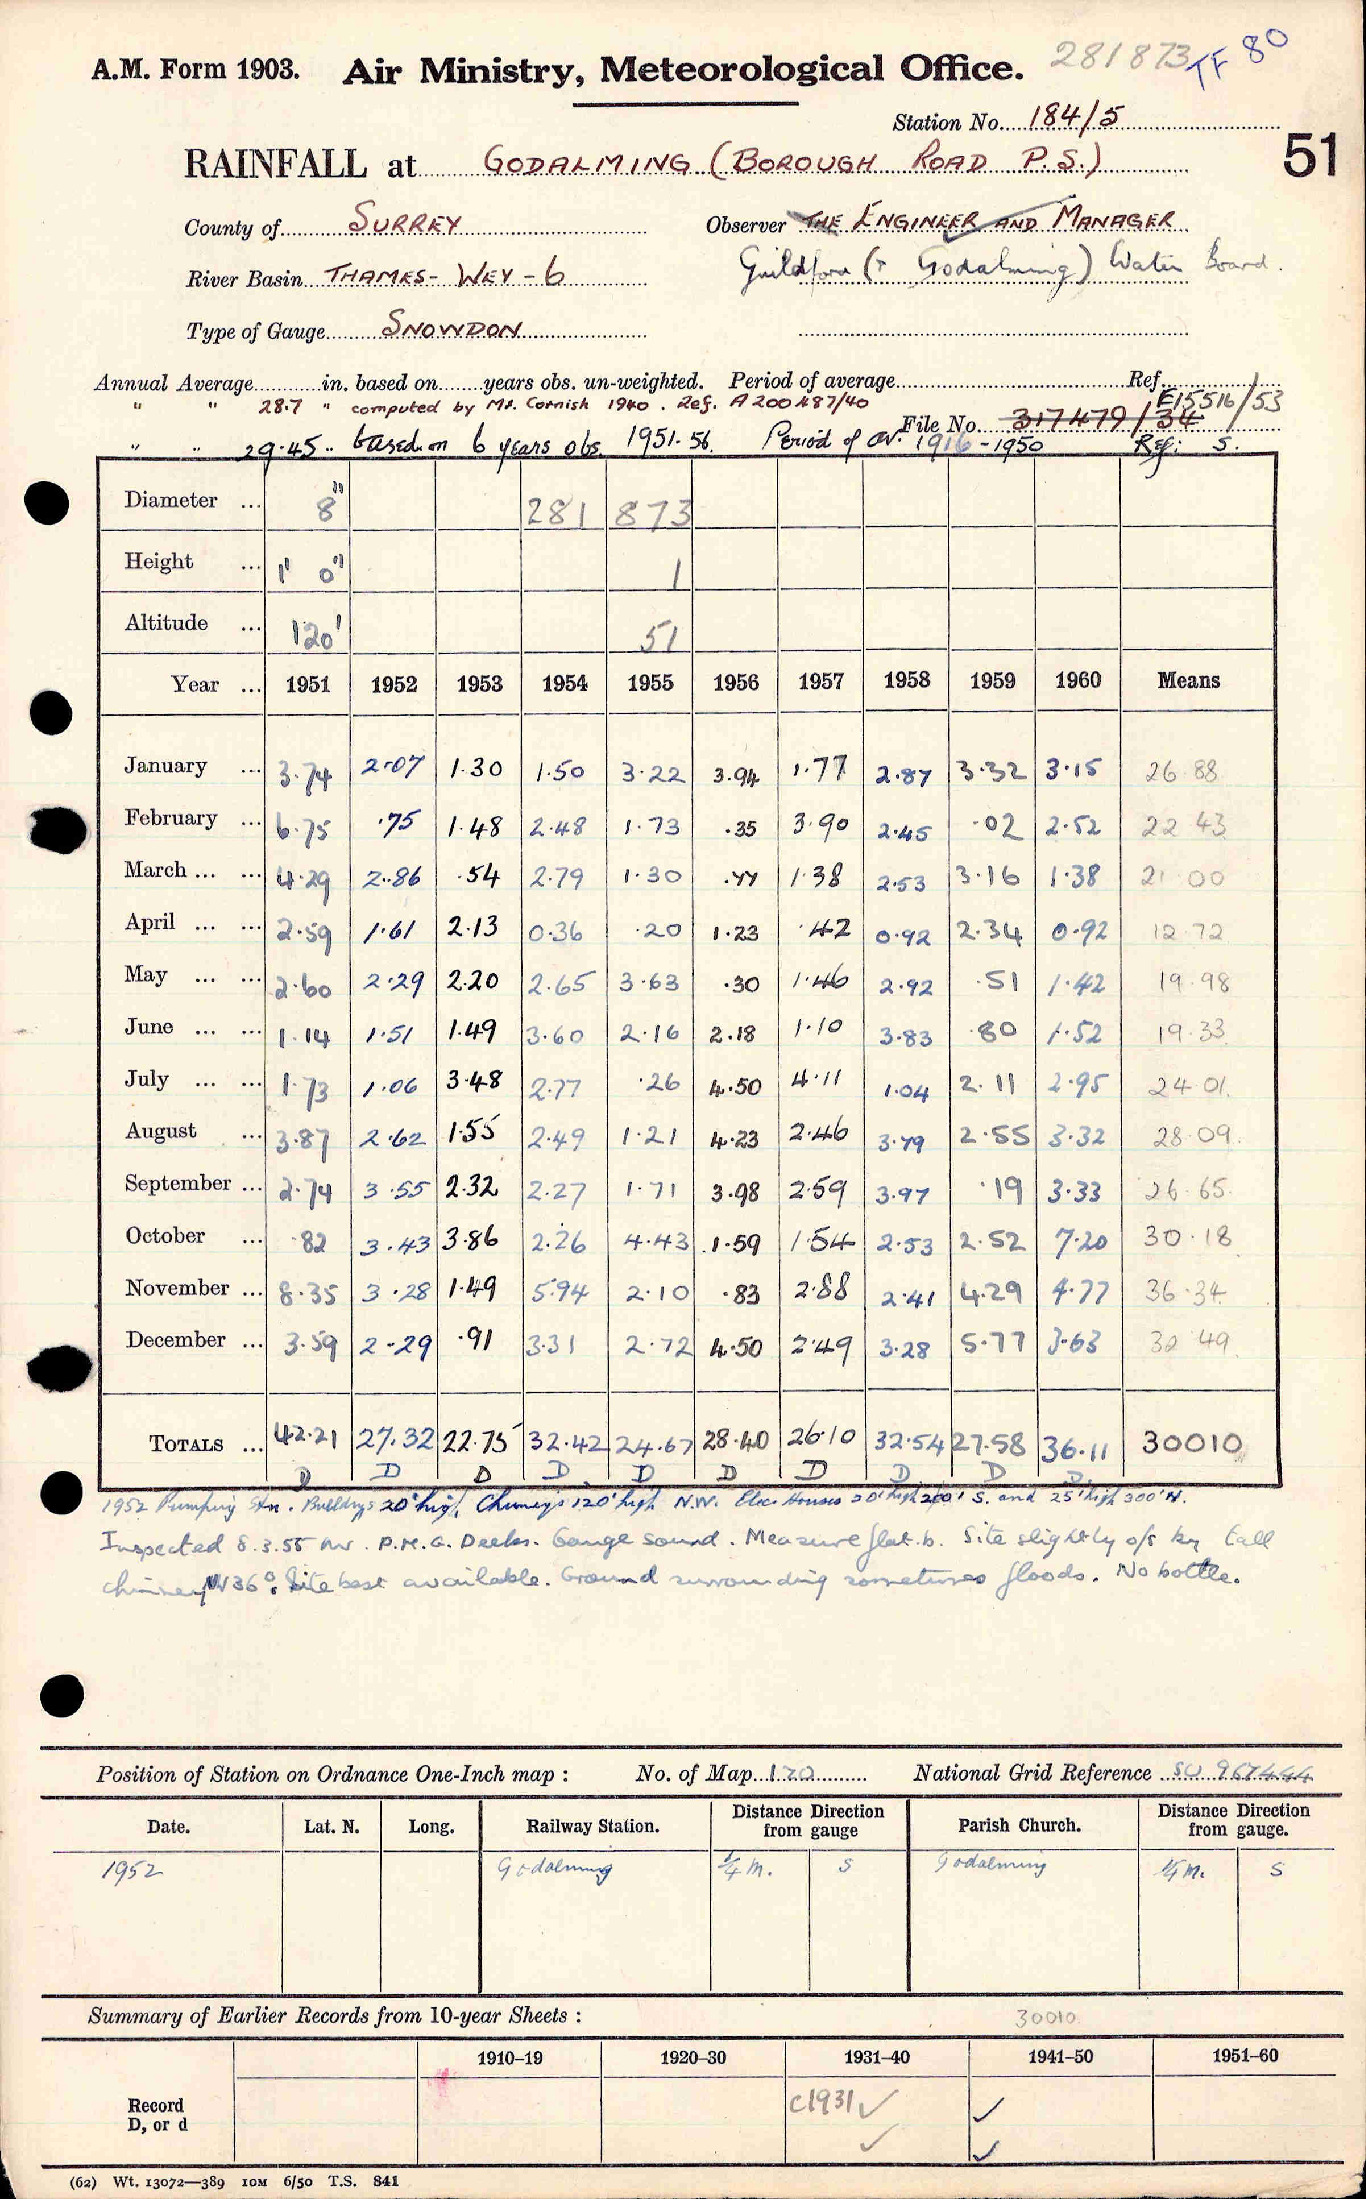 281873 TF 80
A.M. Form 1903. Air Ministry, Meteorological Office.
Station No. 184/5
51
RAINFALL at GODALMING (BOROUGH ROAD P.S.)
County of SURREY Observer THE ENGINEER AND MANAGER
Guildford (+ Godalming) Water Board.
River Basin THAMES - WEY - 6
Type of Gauge SNOWDON
Annual Average in. based on years obs. un-weighted. Period of average Ref.
" " 28.7 " computed by Mr. Cornish 1940. Ref. A200487/40 E15516/53
File No. 317479/34
" " 29.45 " based on 6 years obs. 1951-56 Period of av. 1916-1950 Ref: S.
Diameter ... 8" 281 873
Height ... 1' 0" 1
Altitude ... 120' 51
Year ... 1951 1952 1953 1954 1955 1956 1957 1958 1959 1960 Means
January ... 3.74 2.07 1.30 1.50 3.22 3.94 1.77 2.87 3.32 3.15 26.88
February ... 6.75 .75 1.48 2.48 1.73 .35 3.90 2.45 .02 2.52 22.43
March ... ... 4.29 2.86 .54 2.79 1.30 .77 1.38 2.53 3.16 1.38 21.00
April ... ... 2.59 1.61 2.13 0.36 .20 1.23 .42 0.92 2.34 0.92 12.72
May ... ... 2.60 2.29 2.20 2.65 3.63 .30 1.46 2.92 .51 1.42 19.98
June ... ... 1.14 1.51 1.49 3.60 2.16 2.18 1.10 3.83 .80 1.52 19.33
July ... ... 1.73 1.06 3.48 2.77 .26 4.50 4.11 1.04 2.11 2.95 24.01
August ... 3.87 2.62 1.55 2.49 1.21 4.23 2.46 3.79 2.55 3.32 28.09
September ... 2.74 3.55 2.32 2.27 1.71 3.98 2.59 3.97 .19 3.33 26.65
October ... .82 3.43 3.86 2.26 4.43 1.59 1.54 2.53 2.52 7.20 30.18
November ... 8.35 3.28 1.49 5.94 2.10 .83 2.88 2.41 4.29 4.77 36.34
December ... 3.59 2.29 .91 3.31 2.72 4.50 2.49 3.28 5.77 3.63 32.49
TOTALS ... 42.21 27.32 22.75 32.42 24.67 28.40 26.10 32.54 27.58 36.11 30010
D D D D D D D D D D
1952 Pumping Stn. Buildings 20' high Chimneys 120' high N.W. Elec. Houses 20' high 200' S. and 25' high 300' N.
Inspected 8.3.55 Mr. P.M.G. Deeks. Gauge sound. Measure flat b. Site slightly o/s by tall
chimney NW 36°. Site best available. Ground surrounding sometimes floods. No bottle.
Position of Station on Ordnance One-Inch map : No. of Map 170 National Grid Reference SU 967444
Date. Lat. N. Long. Railway Station. Distance Direction from gauge Parish Church. Distance Direction from gauge.
1952 Godalming ¼ m. S Godalming ¼ m. S
Summary of Earlier Records from 10-year Sheets : 30010
1910–19 1920–30 1931–40 1941–50 1951–60
Record D, or d c1931 ✓ ✓
✓ ✓
(62) Wt. 13072—389 10M 6/50 T.S. 841